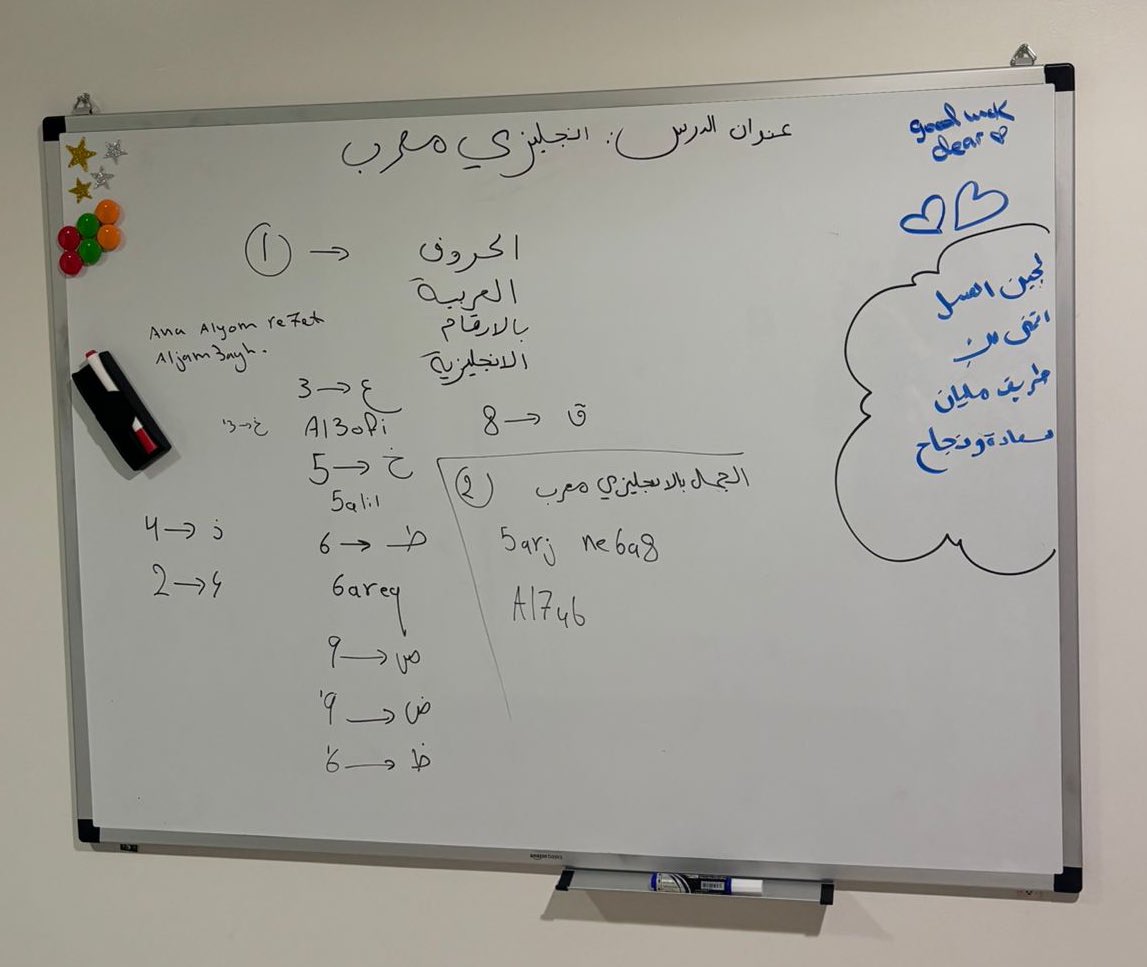 عنوان الدرس: انجليزي معرب
good luck
dear
① → الحروف
العربية
بالارقام
الانجليزية
Ana Alyom re7et
Aljam3ayh.
3 → ع
'3 → غ
Al3ofi
8 → ق
5 → خ
5alil
4 → ذ
6 → ط
2 → ء
6areq
9 → ص
'9 → ض
'6 → ظ
② الجمل بالانجليزي معرب
5arj ne6a8
Al74b
لجين العسل
اتمنى لك
طريق مليان
سعادة ونجاح
amazon basics